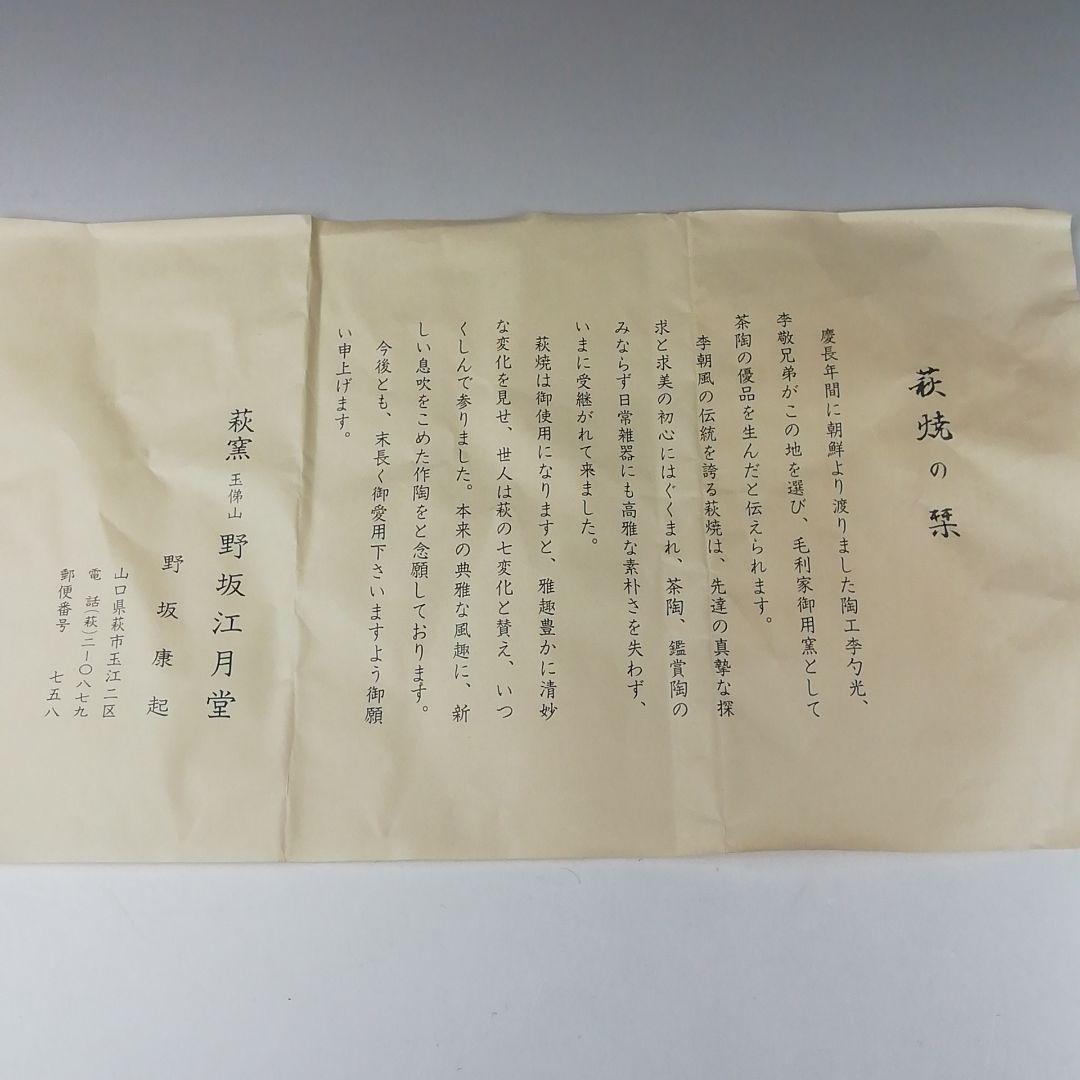 萩焼の栞
慶長年間に朝鮮より渡りました陶工李勺光、
李敬兄弟がこの地を選び、毛利家御用窯として
茶陶の優品を生んだと伝えられます。
李朝風の伝統を誇る萩焼は、先達の真摯な探
求と求美の初心にはぐくまれ、茶陶、鑑賞陶の
みならず日常雑器にも高雅な素朴さを失わず、
いまに受継がれて来ました。
萩焼は御使用になりますと、雅趣豊かに清妙
な変化を見せ、世人は萩の七変化と賛え、いつ
くしんで参りました。本来の典雅な風趣に、新
しい息吹をこめた作陶をと念願しております。
今後とも、末長く御愛用下さいますよう御願
い申上げます。
萩窯 玉俤山 野坂江月堂
野坂康起
山口県萩市玉江二区
電話(萩)二―〇八七九
郵便番号 七五八